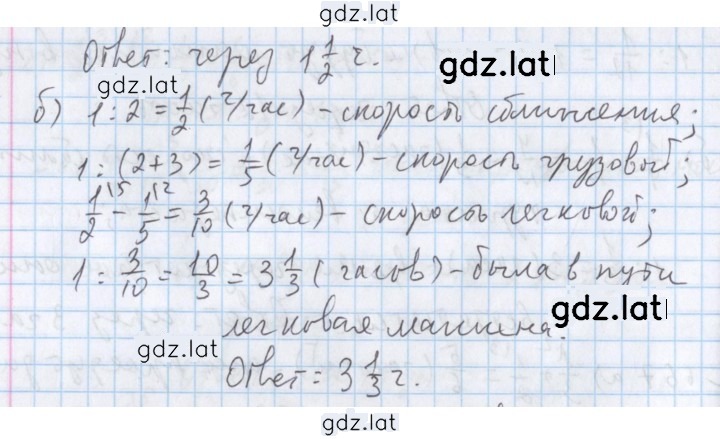 gdz.lat
Ответ: через 1 1/2 ч.
gdz.lat gdz.lat
б) 1 : 2 = 1/2 (ч/час) - скорость сближения;
1 : (2+3) = 1/5 (ч/час) - скорость грузовой;
1/2 \5 - 1/5 \2 = 3/10 (ч/час) - скорость легковой;
1 : 3/10 = 10/3 = 3 1/3 (часов) - была в пути
легковая машина.
gdz.lat gdz.lat
Ответ: 3 1/3 ч.
gdz.lat